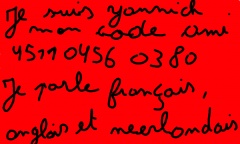 Je suis yannick
mon code ami
4511 0456 0380
Je parle français,
anglais et neerlandais